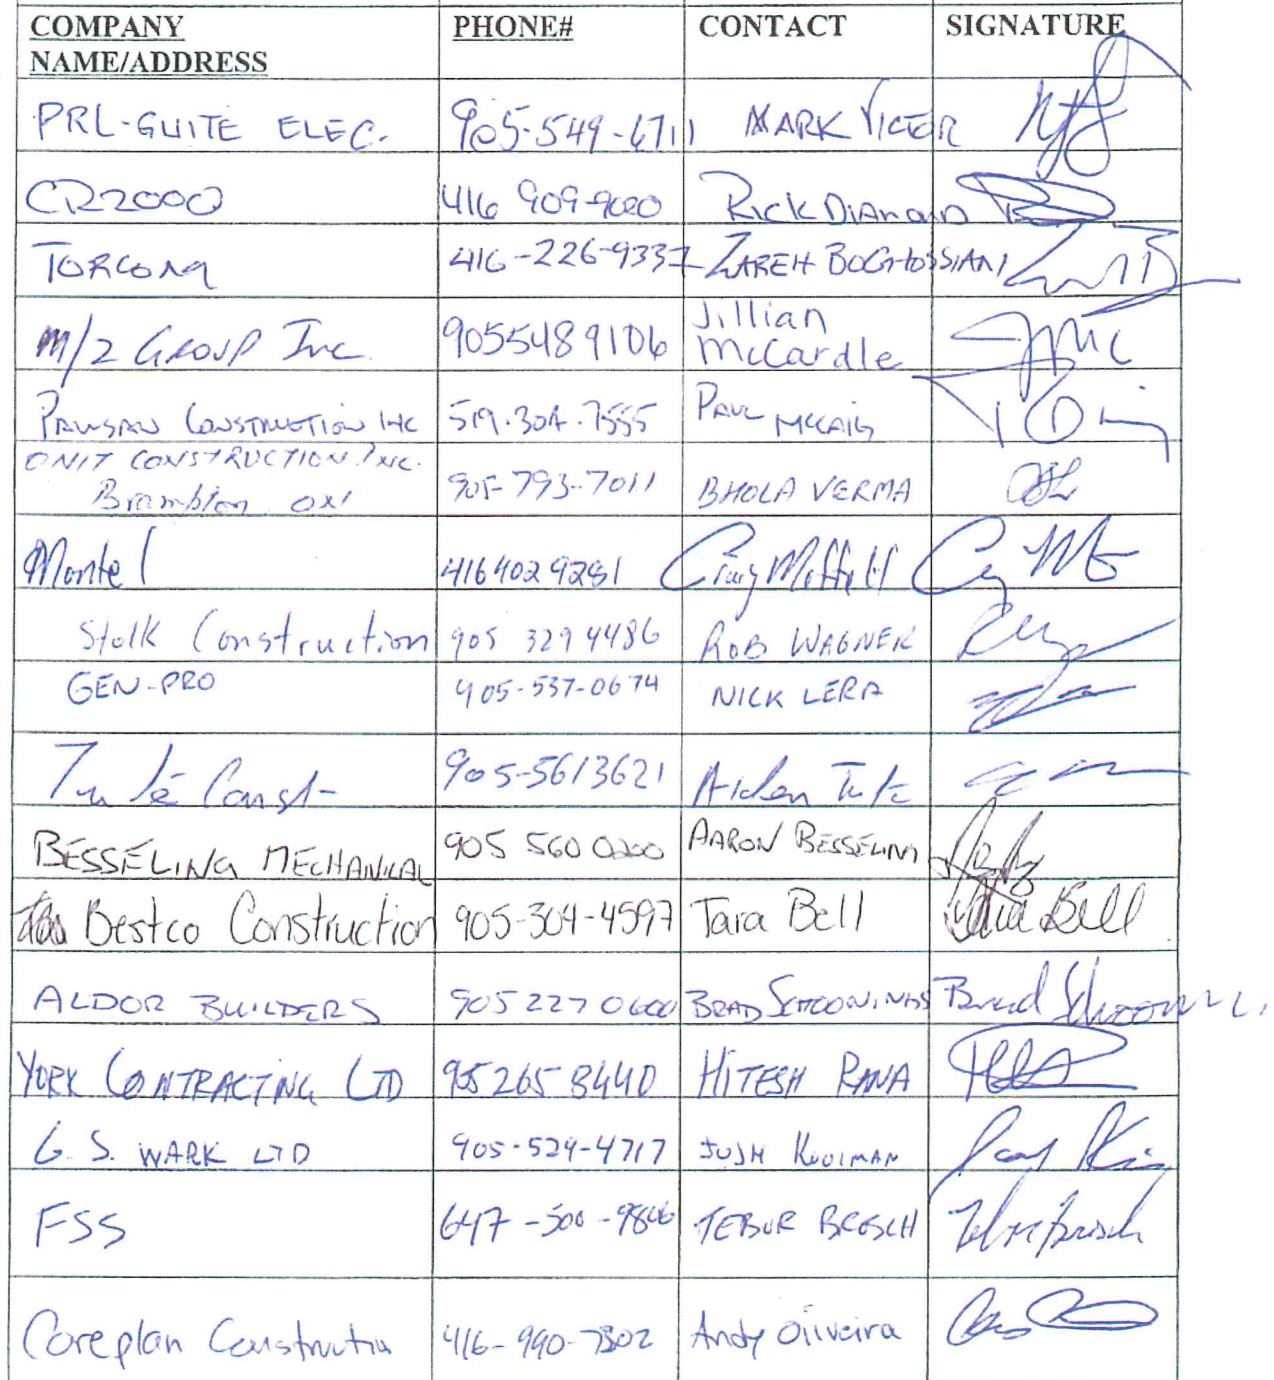 COMPANY NAME/ADDRESS PHONE# CONTACT SIGNATURE
PRL-GUITE ELEC. 905-549-6711 MARK VICTOR
CR2000 416 909-9020 RICK DIAMOND
TORCOM 416-226-9337 ZAREH BOGHOSSIAN
M/2 GROUP Inc. 9055489106 Jillian McCardle
CONSTRUCTION INC 519.304.7555 PAUL MCCAIG
UNIT CONSTRUCTION INC. Brampton ON 905-793-7011 BHOLA VERMA
Montel 4164029281 Craig Moffatt
Stolk Construction 905 329 4486 ROB WAGNER
GEN-PRO 905-537-0674 NICK LERA
Const 905-5613621
BESSELING MECHANICAL 905 560 0200 AARON BESSELING
Bestco Construction 905-304-4597 Tara Bell Tara Bell
ALDOR BUILDERS 905 227 0600 BRAD SCHOONINGS Brad
YORK CONTRACTING LTD 905 265 8440 HITESH RANA
G. S. WARK LTD 905-529-4717 JOSH KOOIMAN
FSS 647-500-9846 TEBUR BROSCH
Coreplan Constructin 416-990-7802 Andy Oliveira